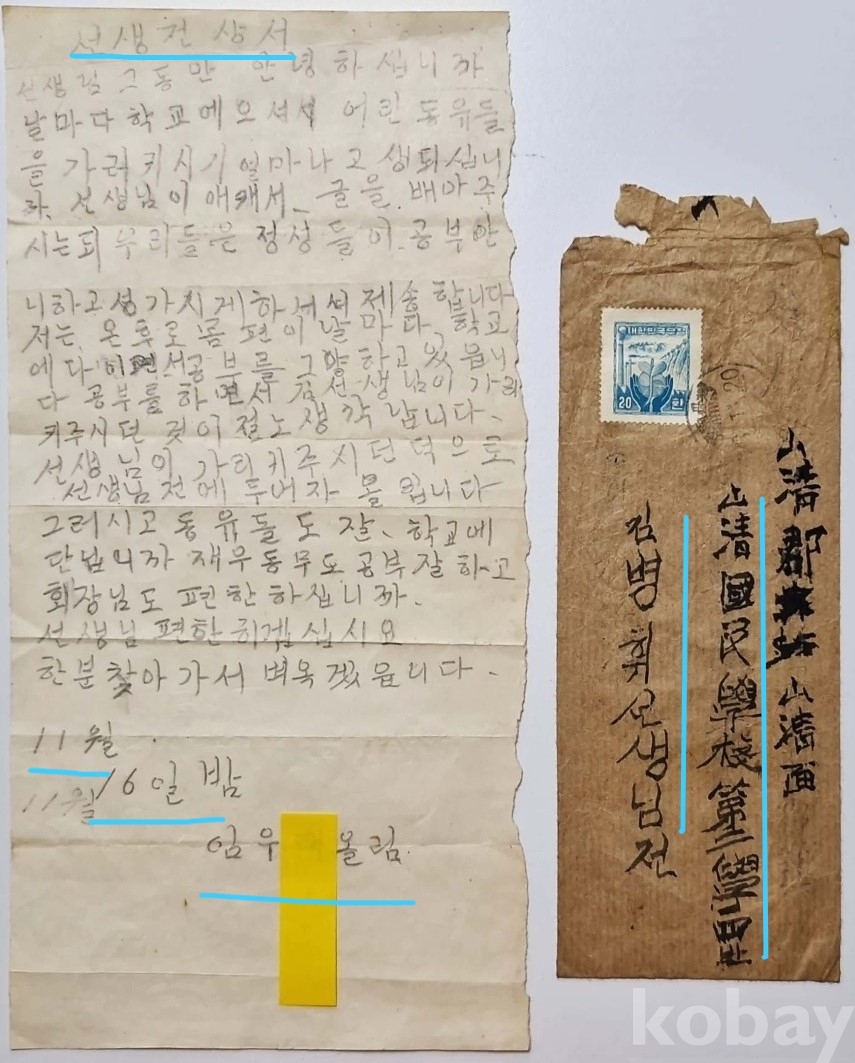 선생전상서
선생님 그동안 안녕하십니까
날마다 학교에오셔서 어린 동유들
을 가러키시기 얼마나 고생되십니
까. 선생님이 애캐서 글을 배아주
시는되 우리들은 정성들이 공부안
니하고 성가시게하여서 제송합니다
저는 온후로 몸편이 날마다 학교
에다 공부를 그양하고 있읍니
다 공부를 하면서 김선생님이 가리
키주시던 것이 절노생각납니다.
선생님이 가리키주시던 덕으로
선생님전에 두버자 올립니다
그러시고 동유들도 잘. 학교에
단닙니까 재우동무도 공부잘하고
회장님도 편한하십니까.
선생님 편한히겝십시요
한분찾아가서 벼옥겠읍니다.
11월
16일밤
11월
임우 올림.
대한민국우표
20 환
山淸郡 山淸面
山淸國民學校 第二學四
김병휘선생님전
kobay